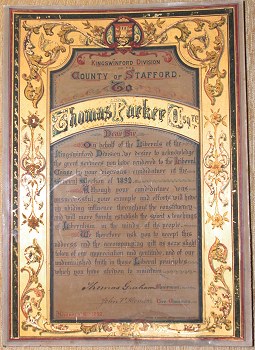 KINGSWINFORD DIVISION
COUNTY OF STAFFORD.
To
Thomas Parker Esqre
Dear Sir,
On behalf of the Liberals of the
Kingswinford Division, we desire to acknowledge
the great services you have rendered to the Liberal
Cause by your vigorous candidature at the
General Election of 1892.
Although your candidature was
unsuccessful, your example and efforts will have
a lasting influence throughout the constituency
and will more firmly establish the great teachings
of Liberalism in the minds of the people.
We therefore ask you to accept this
address and the accompanying gift as some slight
token of our appreciation and esteem, and of our
undiminished faith in those Liberal principles
which you have striven to
Thomas Graham
John